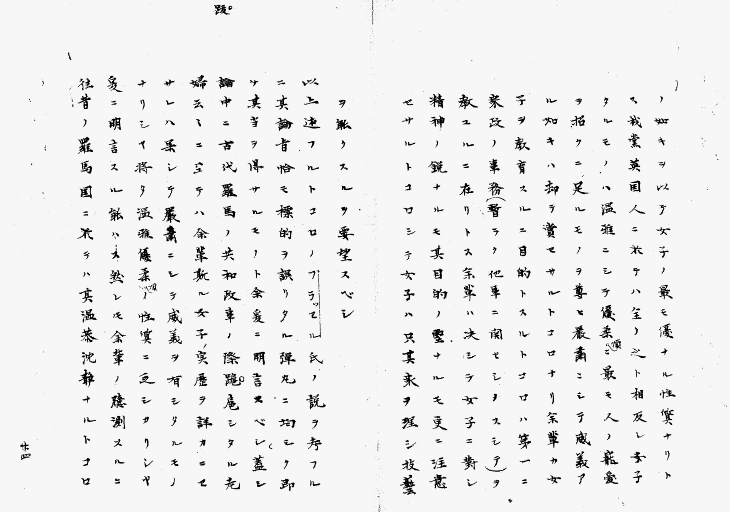 ノ如キヲ以テ女子ノ最モ優ナル性質ナリト
ス我黨英国人ニ於テハ全ク之ト相反シ女子
タルモノハ温雅ニシテ優柔順ニ最モ人ノ寵愛
ヲ招クニ足ルモノヲ尊ヒ嚴肅ニシテ威義ア
ル如キハ却テ賞セサルトコロナリ余輩カ女
子ヲ教育スルニ目的トスルトコロハ第一ニ
家政ノ事務(暫ラク他事ニ関セシメスシテ)ヲ
教ユルニ在リトス余輩ハ决シテ女子ニ對シ
精神ノ鋭ナルモ其目的ノ ナルモ更ニ注意
セサルトコロシテ女子ハ只其家ヲ理シ技藝
ヲ能クスルヲ要望スベシ
以上述フルトコロノフラッセル氏ノ説ヲ考フル
ニ其論旨恰モ標的ヲ誤リタル彈丸ニ均シク即
チ其当ヲ得サルモノト余爰ニ明言スベシ蓋シ
論中ニ古代羅馬ノ共和政事ノ際 シタル老
婦云々ニ至テハ余輩斯ル女子ノ実歴ヲ詳カニセ
サレハ果シテ嚴肅ニシテ威義ヲ有シタルモノ
ナリシヤ将タ温雅優柔順ノ性質ニ乏シカリシヤ
爰ニ明言スル能ハス然レモ余輩ノ臆測スルニ
往昔ノ羅馬国ニ於テハ真温恭沈静ナルトコロ
廿四